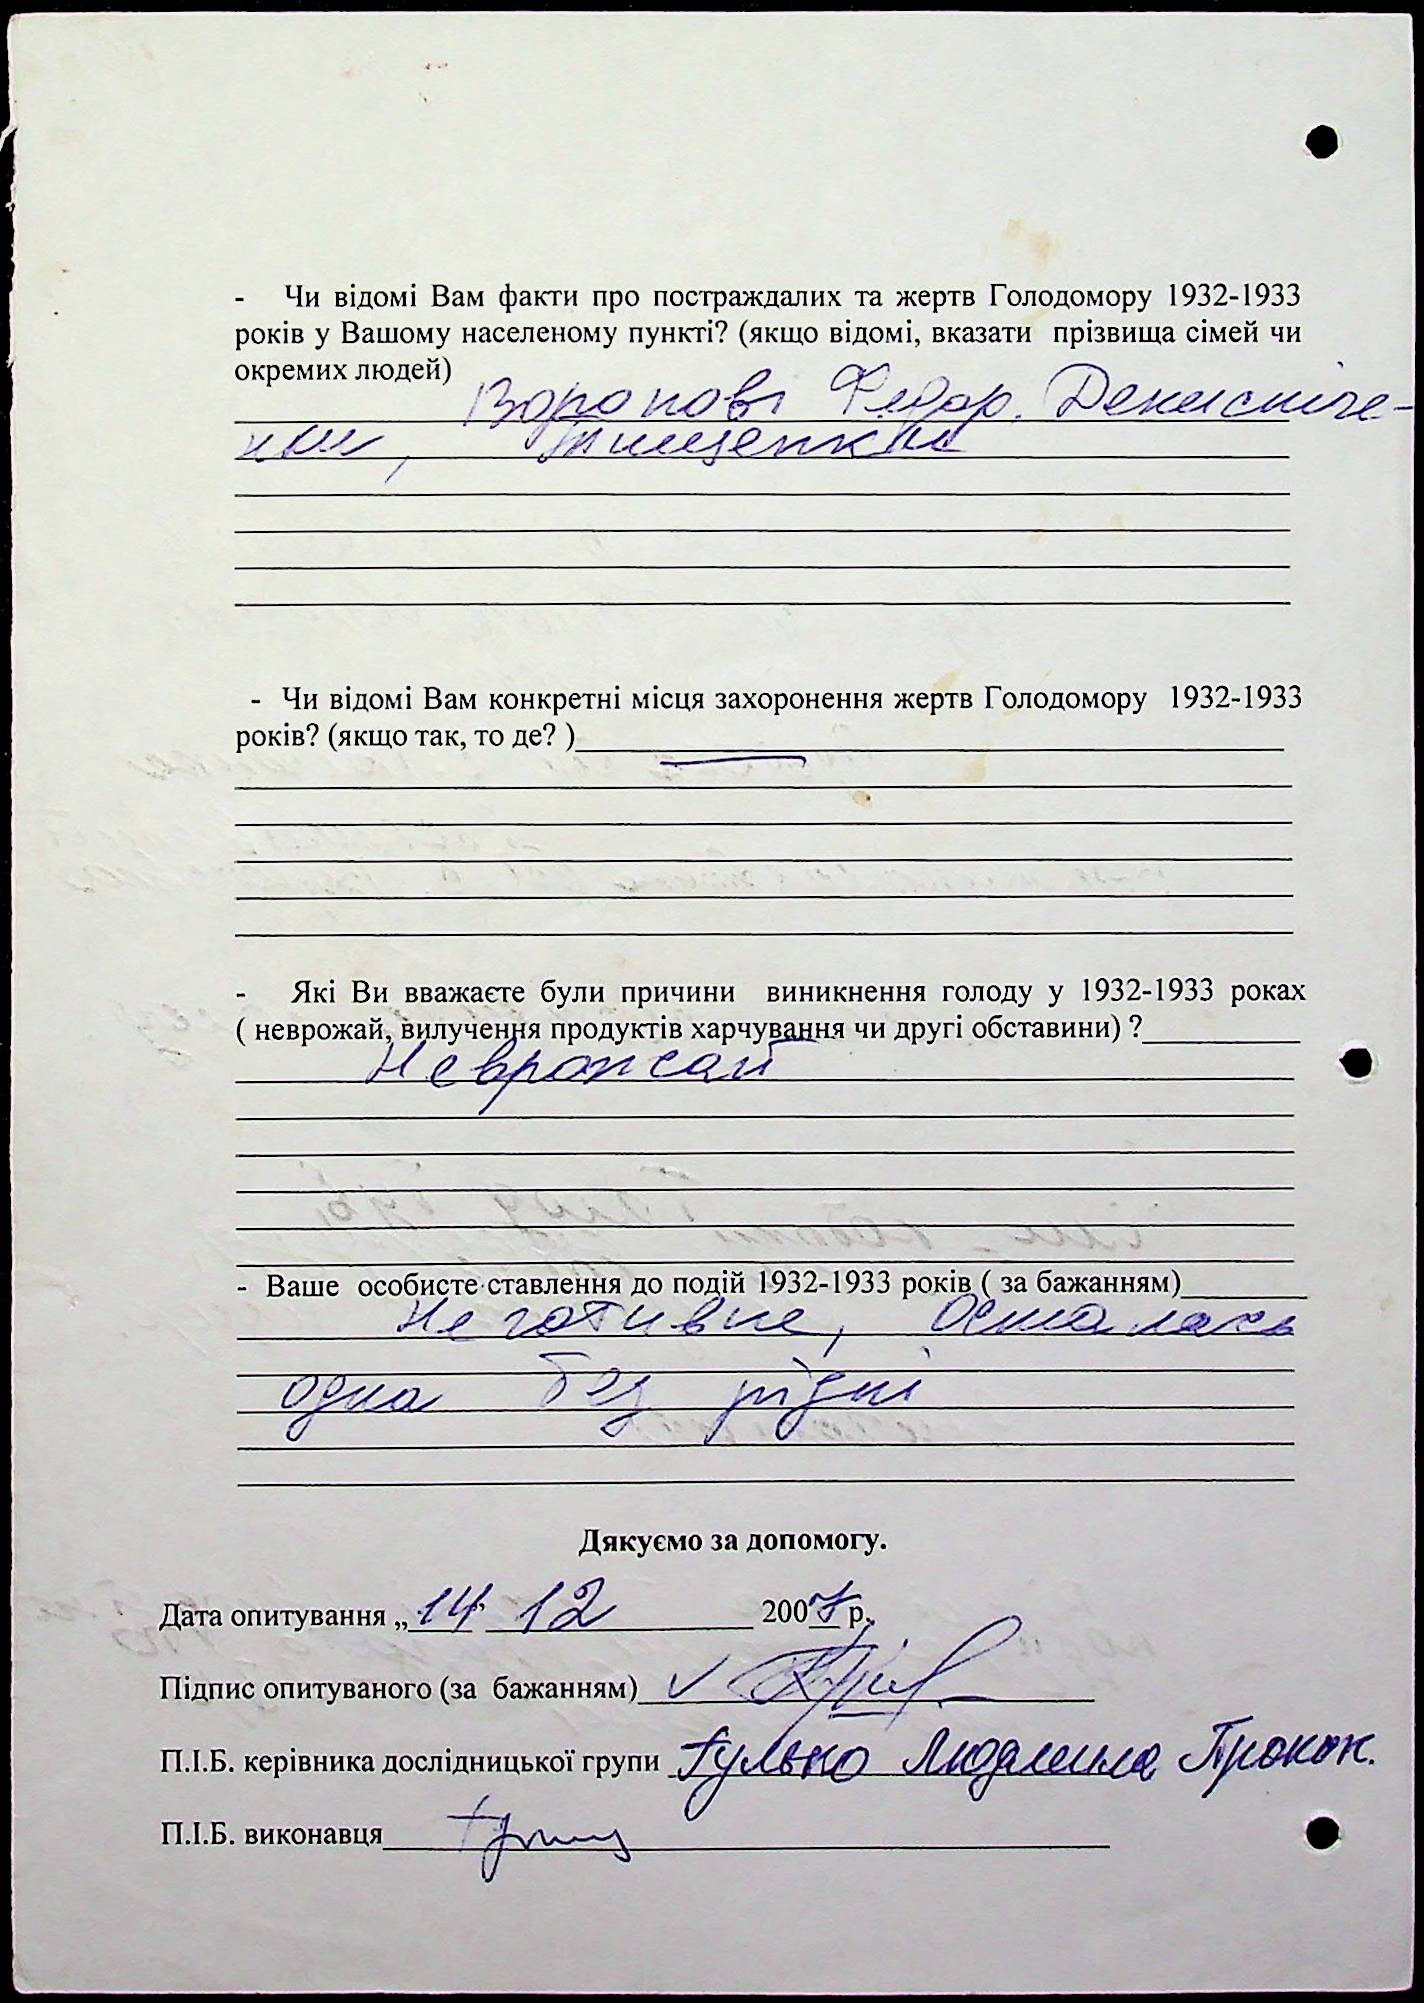 - Чи відомі Вам факти про постраждалих та жертв Голодомору 1932-1933
років у Вашому населеному пункті? (якщо відомі, вказати прізвища сімей чи
окремих людей)
Воронові Федор,
Тищенки
- Чи відомі Вам конкретні місця захоронення жертв Голодомору 1932-1933
років? (якщо так, то де? )
- Які Ви вважаєте були причини виникнення голоду у 1932-1933 роках
( неврожай, вилучення продуктів харчування чи другі обставини) ?
Неврожай
- Ваше особисте ставлення до подій 1932-1933 років ( за бажанням)
Негативне, Осталась
одна без рідні
Дякуємо за допомогу.
Дата опитування „14” 12 2007 р.
Підпис опитуваного (за бажанням)
П.І.Б. керівника дослідницької групи Гулько Людмила Прокоп.
П.І.Б. виконавця